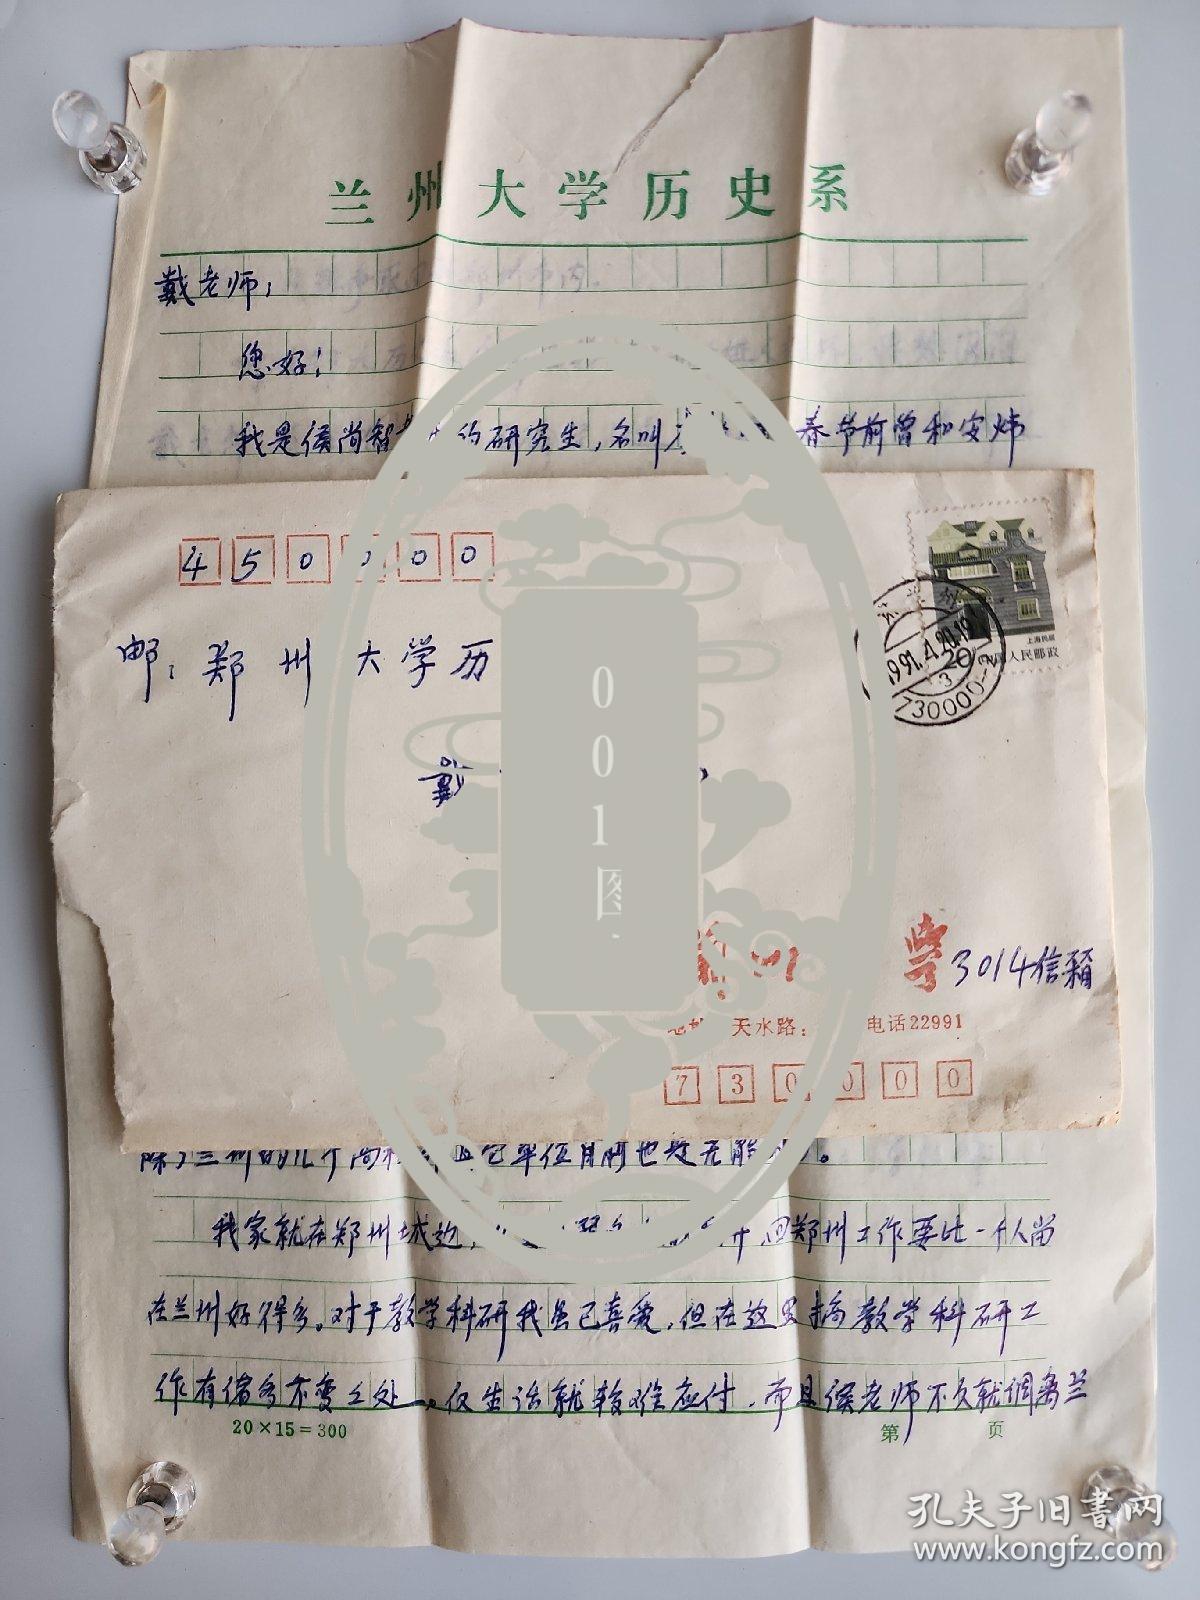 兰州大学历史系
戴老师：
您好！
我是侯尚智 的研究生，名叫 春节前曾和安炜
450000
邮：郑州大学历
戴
上海民居
20 中国人民邮政
1991.4.20.19
3
730000
001图
3014信箱
天水路： 电话22991
730000
除了兰州的几个高校 其它单位目前也是无能 。
我家就在郑州城边， 回郑州工作要比一个人留
在兰州好得多。对于教学科研我虽已喜爱，但在这里搞教学科研工
作有诸多不变之处。仅生活就较难应付，而且侯老师不久就调离兰
20×15=300
第 页
孔夫子旧书网
www.kongfz.com